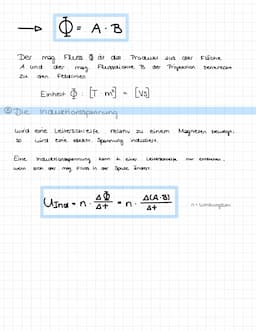 → Φ = A · B
Der mag. Fluss Φ ist das Produkt aus der Fläche
A und der mag. Flussdichte B der Projektion senkrecht
zu den Feldlinien
Einheit Φ : [T · m²] = [Vs]
Die Induktionsspannung
Wird eine Leiterschleife relativ zu einem Magneten bewegt,
so wird eine elektr. Spannung induziert.
Eine Induktionsspannung kann in einer Leiterschleife nur entstehen,
wenn sich der mag. Fluss in der Spule ändert.
U_Ind = n · ΔΦ/Δt = n · Δ(A·B)/Δt
n = Windungszahl